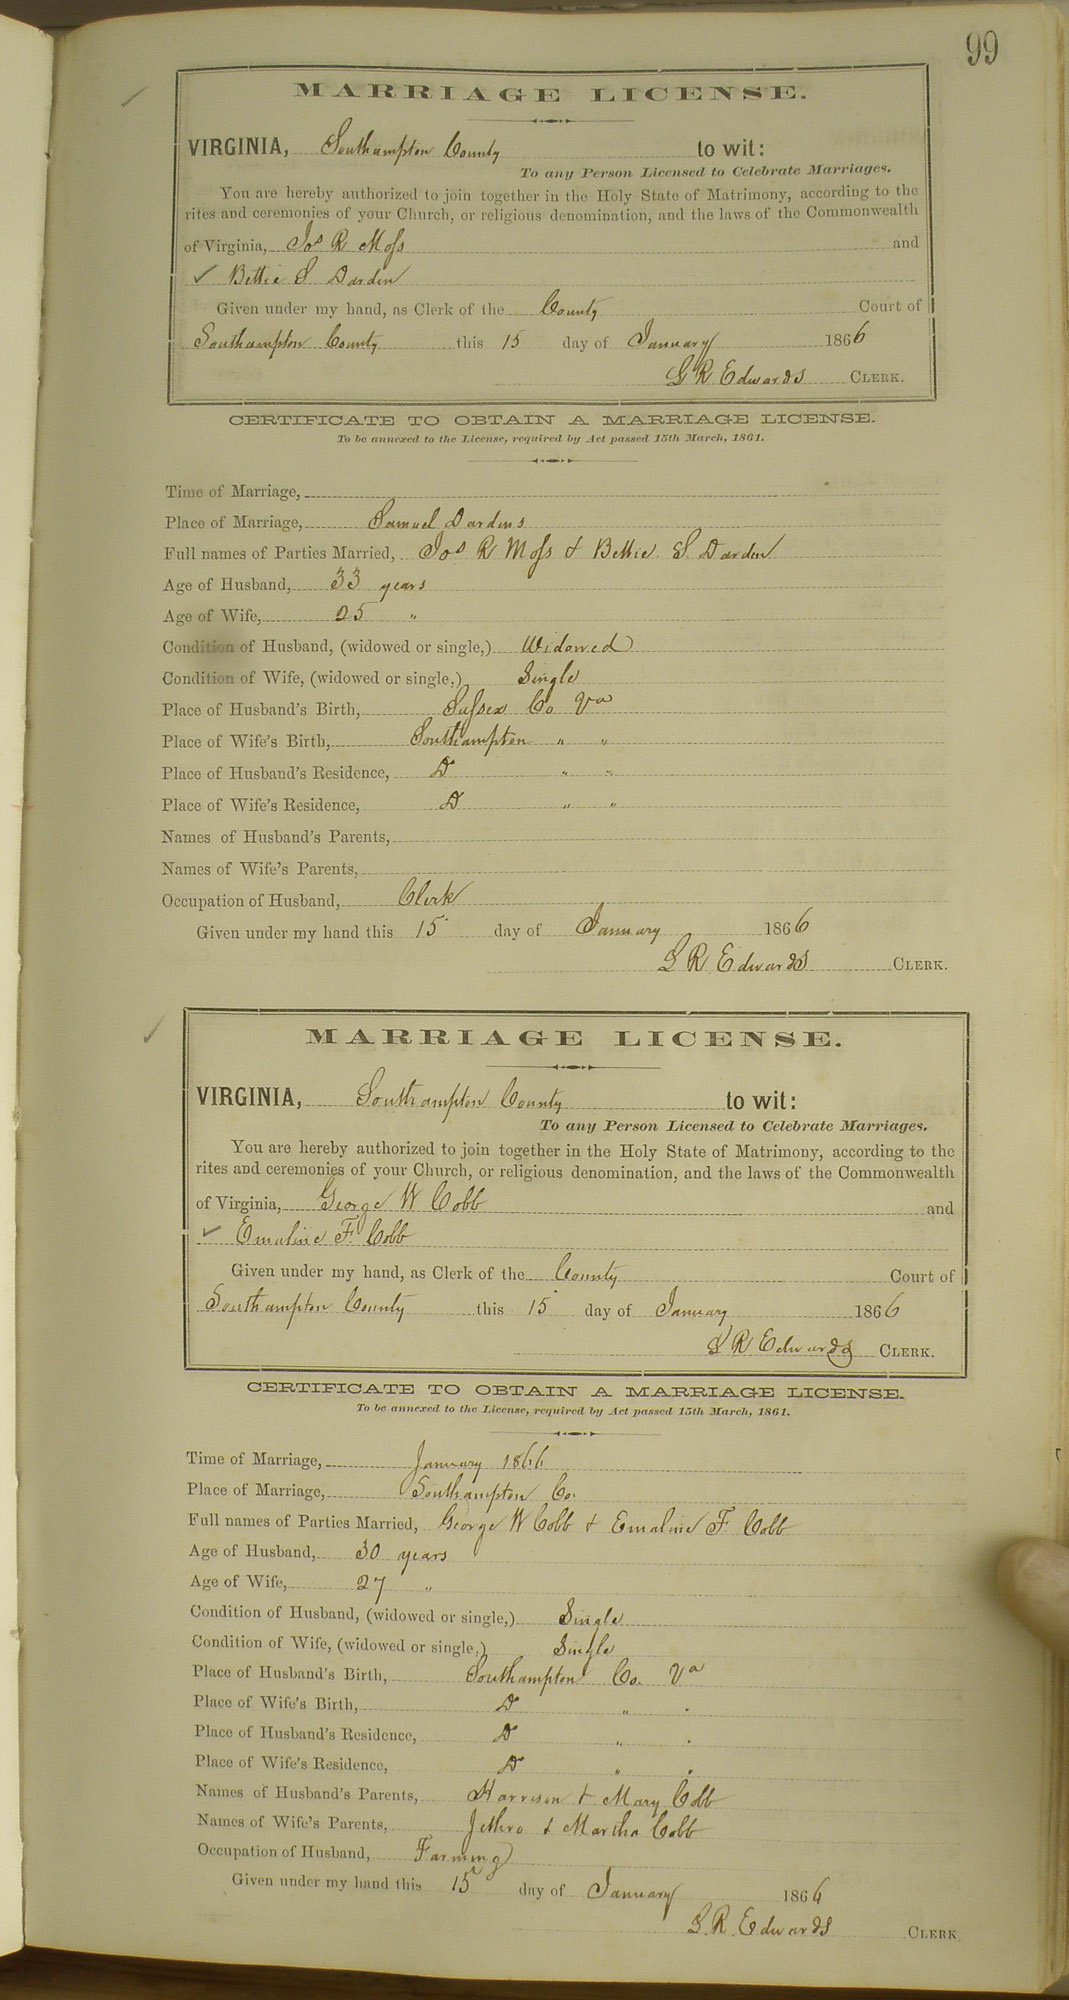 99
MARRIAGE LICENSE.
VIRGINIA, Southampton County to wit:
To any Person Licensed to Celebrate Marriages.
You are hereby authorized to join together in the Holy State of Matrimony, according to the
rites and ceremonies of your Church, or religious denomination, and the laws of the Commonwealth
of Virginia, Jos R Moss and
✓ Bettie S. Darden
Given under my hand, as Clerk of the County Court of
Southampton County this 15 day of January 1866
L R Edwards CLERK.
CERTIFICATE TO OBTAIN A MARRIAGE LICENSE.
To be annexed to the License, required by Act passed 15th March, 1861.
Time of Marriage,
Place of Marriage, Samuel Dardens
Full names of Parties Married, Jos R Moss & Bettie S. Darden
Age of Husband, 33 years
Age of Wife, 25 "
Condition of Husband, (widowed or single,) Widowed
Condition of Wife, (widowed or single,) Single
Place of Husband's Birth, Sussex Co Va
Place of Wife's Birth, Southampton " "
Place of Husband's Residence, Do " "
Place of Wife's Residence, Do " "
Names of Husband's Parents,
Names of Wife's Parents,
Occupation of Husband, Clerk
Given under my hand this 15 day of January 1866
L R Edwards CLERK.
MARRIAGE LICENSE.
VIRGINIA, Southampton County to wit:
To any Person Licensed to Celebrate Marriages.
You are hereby authorized to join together in the Holy State of Matrimony, according to the
rites and ceremonies of your Church, or religious denomination, and the laws of the Commonwealth
of Virginia, George W Cobb and
✓ Emaline F. Cobb
Given under my hand, as Clerk of the County Court of
Southampton County this 15 day of January 1866
L R Edwards CLERK.
CERTIFICATE TO OBTAIN A MARRIAGE LICENSE.
To be annexed to the License, required by Act passed 15th March, 1861.
Time of Marriage, January 1866
Place of Marriage, Southampton Co.
Full names of Parties Married, George W Cobb & Emaline F. Cobb
Age of Husband, 30 years
Age of Wife, 27 "
Condition of Husband, (widowed or single,) Single
Condition of Wife, (widowed or single,) Single
Place of Husband's Birth, Southampton Co. Va
Place of Wife's Birth, Do " "
Place of Husband's Residence, Do " "
Place of Wife's Residence, Do " "
Names of Husband's Parents, Harrison & Mary Cobb
Names of Wife's Parents, Jethro & Martha Cobb
Occupation of Husband, Farming
Given under my hand this 15 day of January 1866
L. R. Edwards CLERK